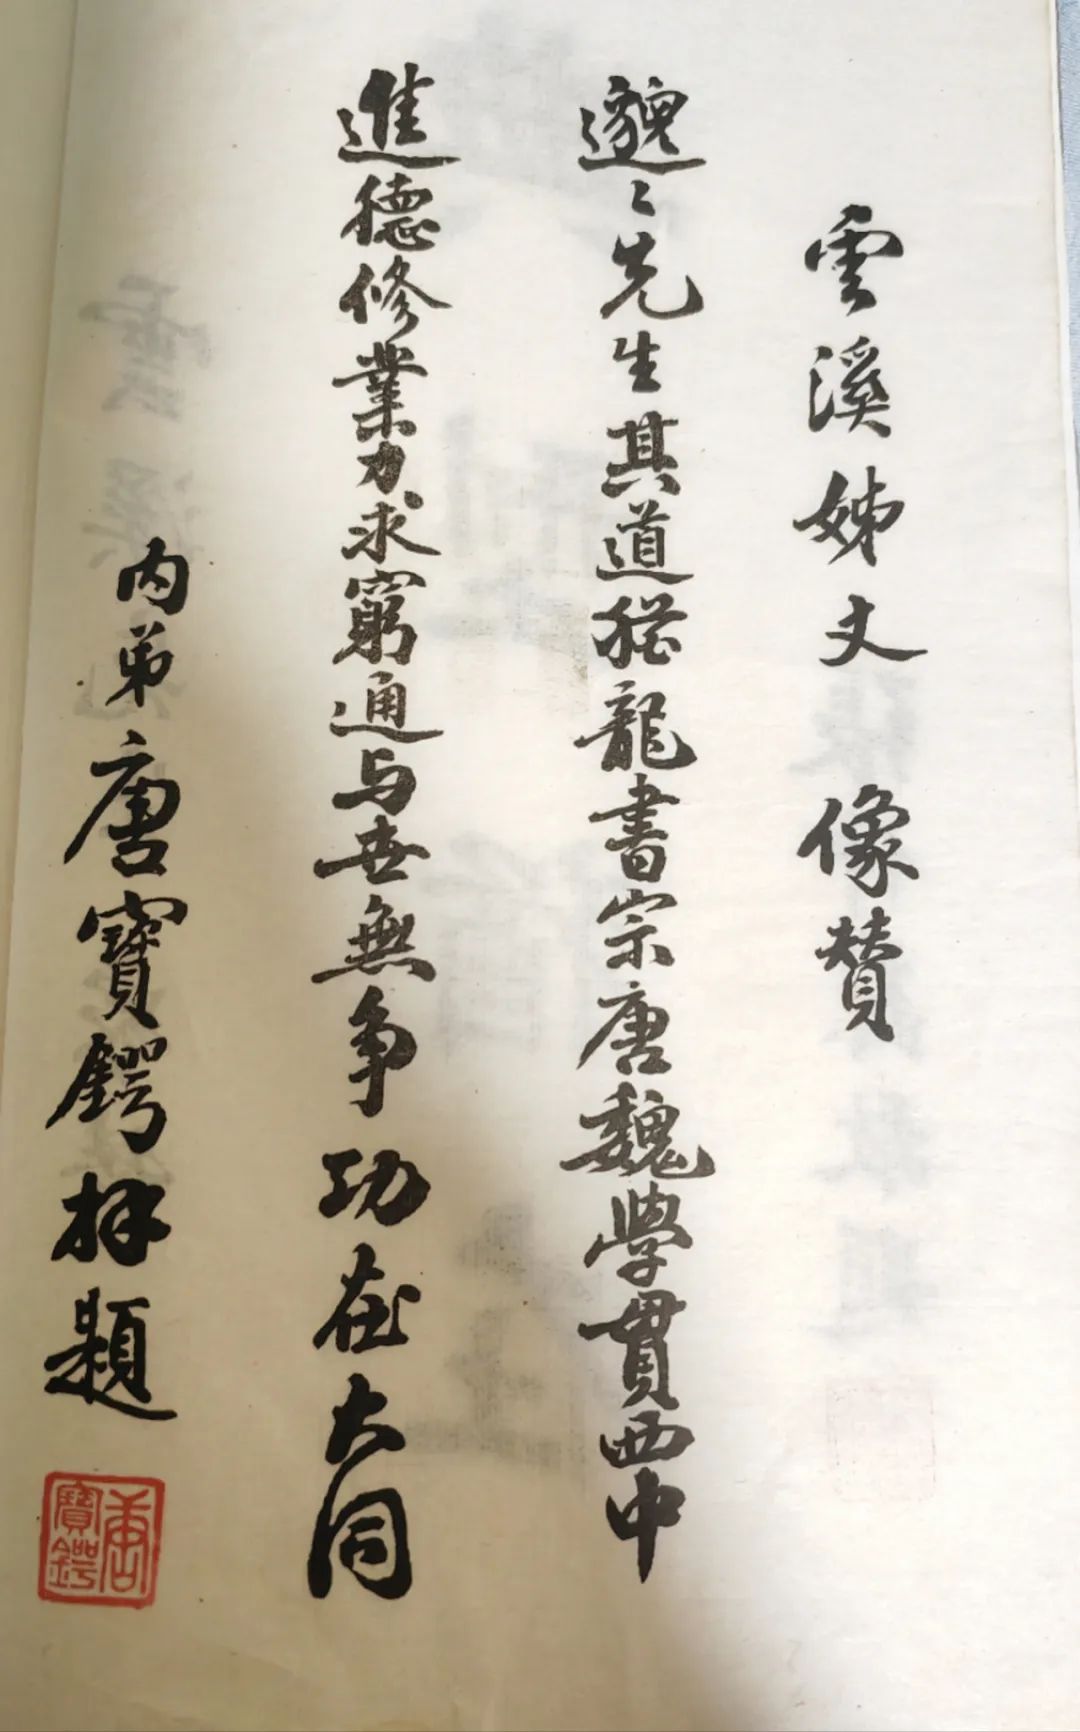 雲溪姊丈 像贊
邈〻先生其道猶龍書宗唐魏學貫西中
進德修業力求窮通与世無争功在大同
内弟唐寶鍔拜題
唐寶鍔